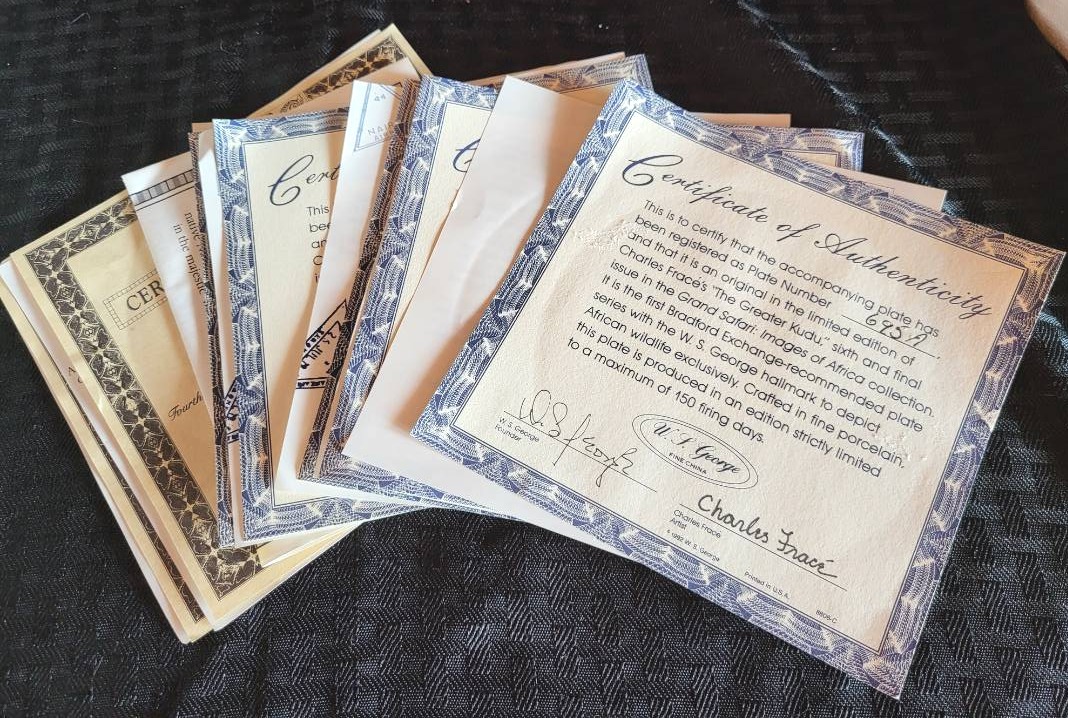 Certificate of Authenticity
This is to certify that the accompanying plate has
been registered as Plate Number
and that it is an original in the limited edition of
Charles Fracé's "The Greater Kudu," sixth and final
issue in the Grand Safari: Images of Africa collection.
It is the first Bradford Exchange-recommended plate
series with the W. S. George hallmark to depict
African wildlife exclusively. Crafted in fine porcelain,
this plate is produced in an edition strictly limited
to a maximum of 150 firing days.
W S George
W. S. George
Founder
W. S. George
FINE CHINA
Charles Fracé
Charles Fracé
Artist
© 1992 W. S. George
Printed in U.S.A.
8806-C
Cert
This
bee
an
CER
Fourth
native
in the majestic